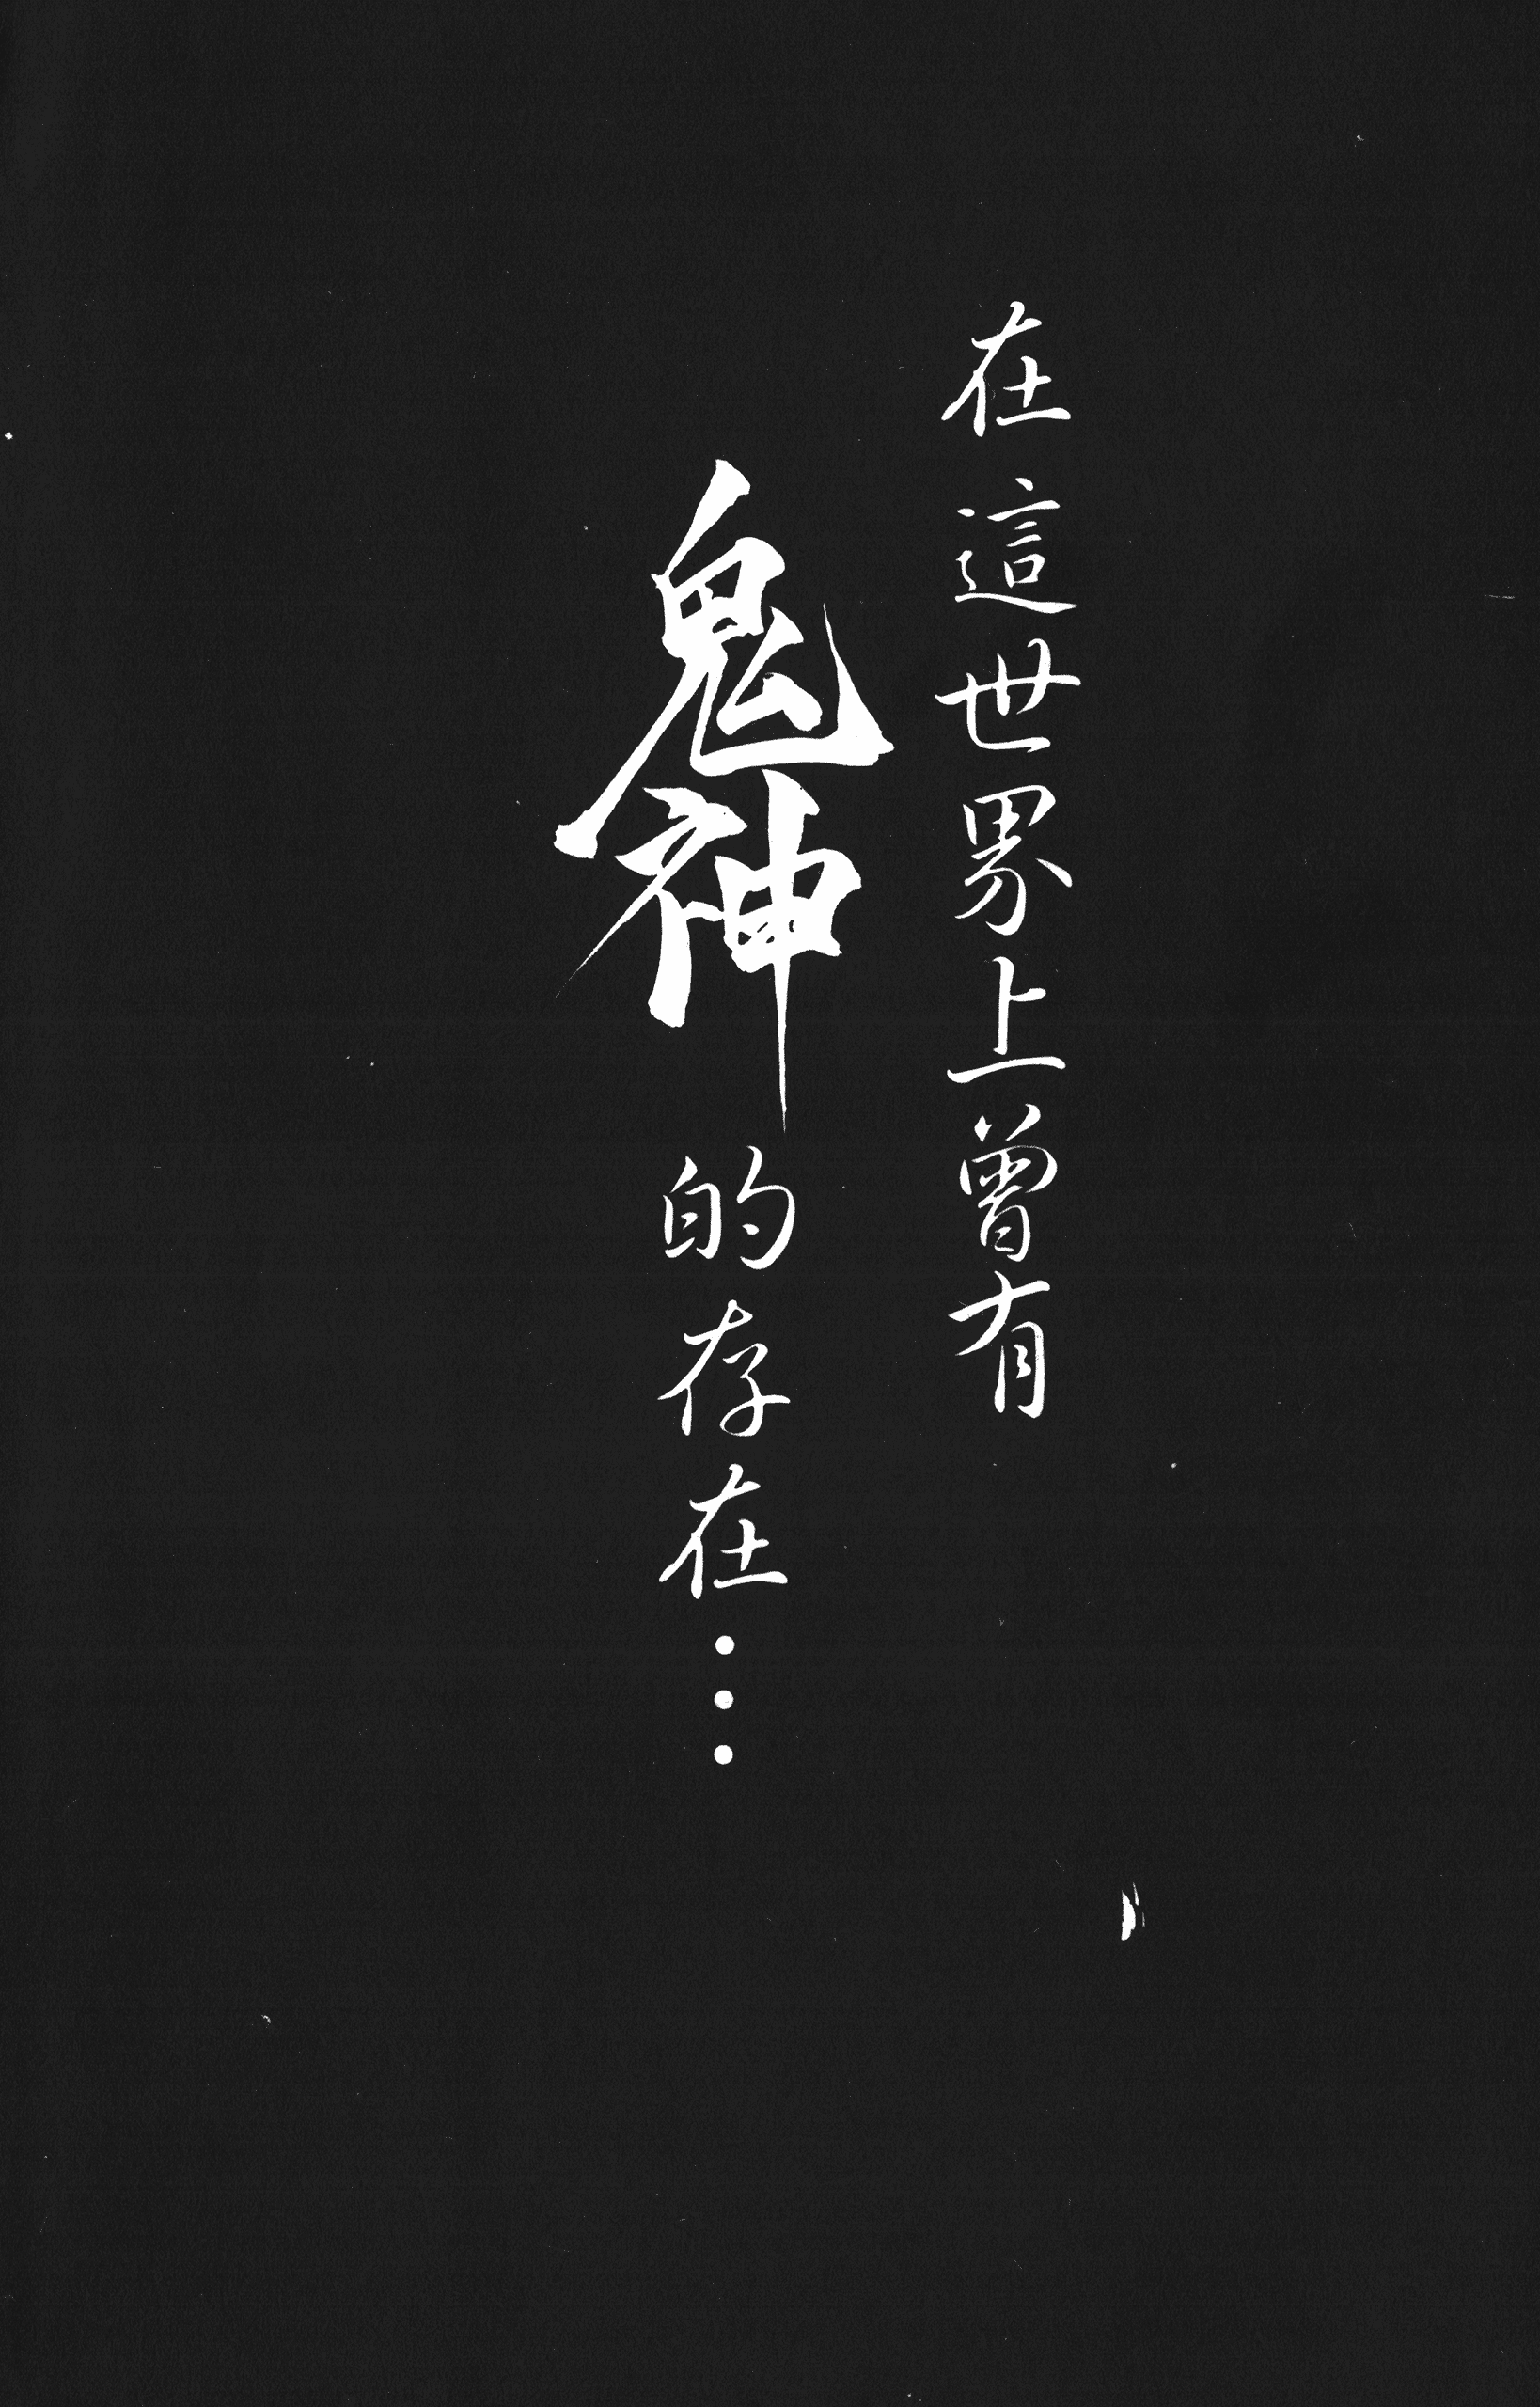 在這世界上曾有
鬼神的存在…